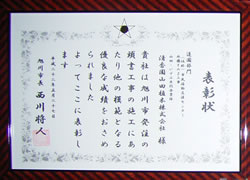 表彰状
造園部門
清香園山田植木株式会社 様
貴社は旭川市発注の
頭書工事の施工にあ
たり他の模範となる
優良な成績をおさめ
られました
よってここに表彰し
ます
旭川市長 西川将人